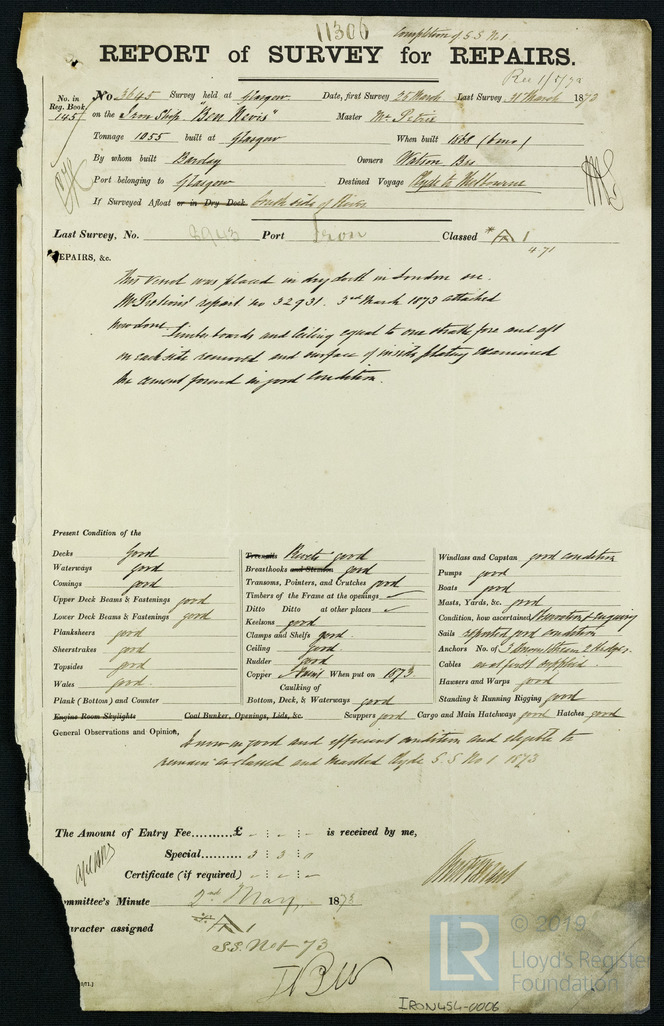 11306
Completion of S.S. No 1
REPORT of SURVEY for REPAIRS.
Rec 1/5/73
No. in Reg. Book 145
No 3645 Survey held at Glasgow Date, first Survey 25 March Last Survey 31 March 1873
on the Iron Ship "Ben Nevis" Master Mr Petrie
Tonnage 1055 built at Glasgow When built 1868
By whom built Barclay Owners Watson Bro
Port belonging to Glasgow Destined Voyage Clyde to Melbourne
If Surveyed Afloat or in Dry Dock South side of River
Last Survey, No. 2943 Port Iron Classed A 1
4.71
REPAIRS, &c.
This Vessel was placed in dry dock in London see
report no 32931. 3rd March 1873 attached
now done Limber boards and Ceiling equal to one strake fore and aft
on each side removed and surface of inside plating examined
the cement found in good condition.
Present Condition of the
Decks good
Waterways good
Comings good
Upper Deck Beams & Fastenings good
Lower Deck Beams & Fastenings good
Planksheers good
Sheerstrakes good
Topsides good
Wales good
Plank (Bottom) and Counter
Engine Room Skylights Coal Bunker, Openings, Lids, &c.
Treenails Rivets good
Breasthooks and Stemson good
Transoms, Pointers, and Crutches good
Timbers of the Frame at the openings ✓
Ditto Ditto at other places ✓
Keelsons good
Clamps and Shelfs good
Ceiling good
Rudder good
Copper Paint When put on 1873
Caulking of
Bottom, Deck, & Waterways good
Windlass and Capstan good condition
Pumps good
Boats good
Masts, Yards, &c. good
Condition, how ascertained Observation & enquiry
Sails reported good condition
Anchors No. of 3 Bowers 1 Stream 2 Kedges
Cables as at first supplied
Hawsers and Warps good
Standing & Running Rigging good
Scuppers good Cargo and Main Hatchways good Hatches good
General Observations and Opinion, Is now in good and efficient condition and eligible to
remain as classed and marked Clyde S.S No 1 1873
The Amount of Entry Fee..........£ - : - : - is received by me,
Special.......... 3 : 3 : 0
Certificate (if required) - : - : -
Committee's Minute 2nd May 1873
Character assigned A 1
S.S. No 1 - 73
LR
© 2019
Lloyd's Register
Foundation
IRON454-0006